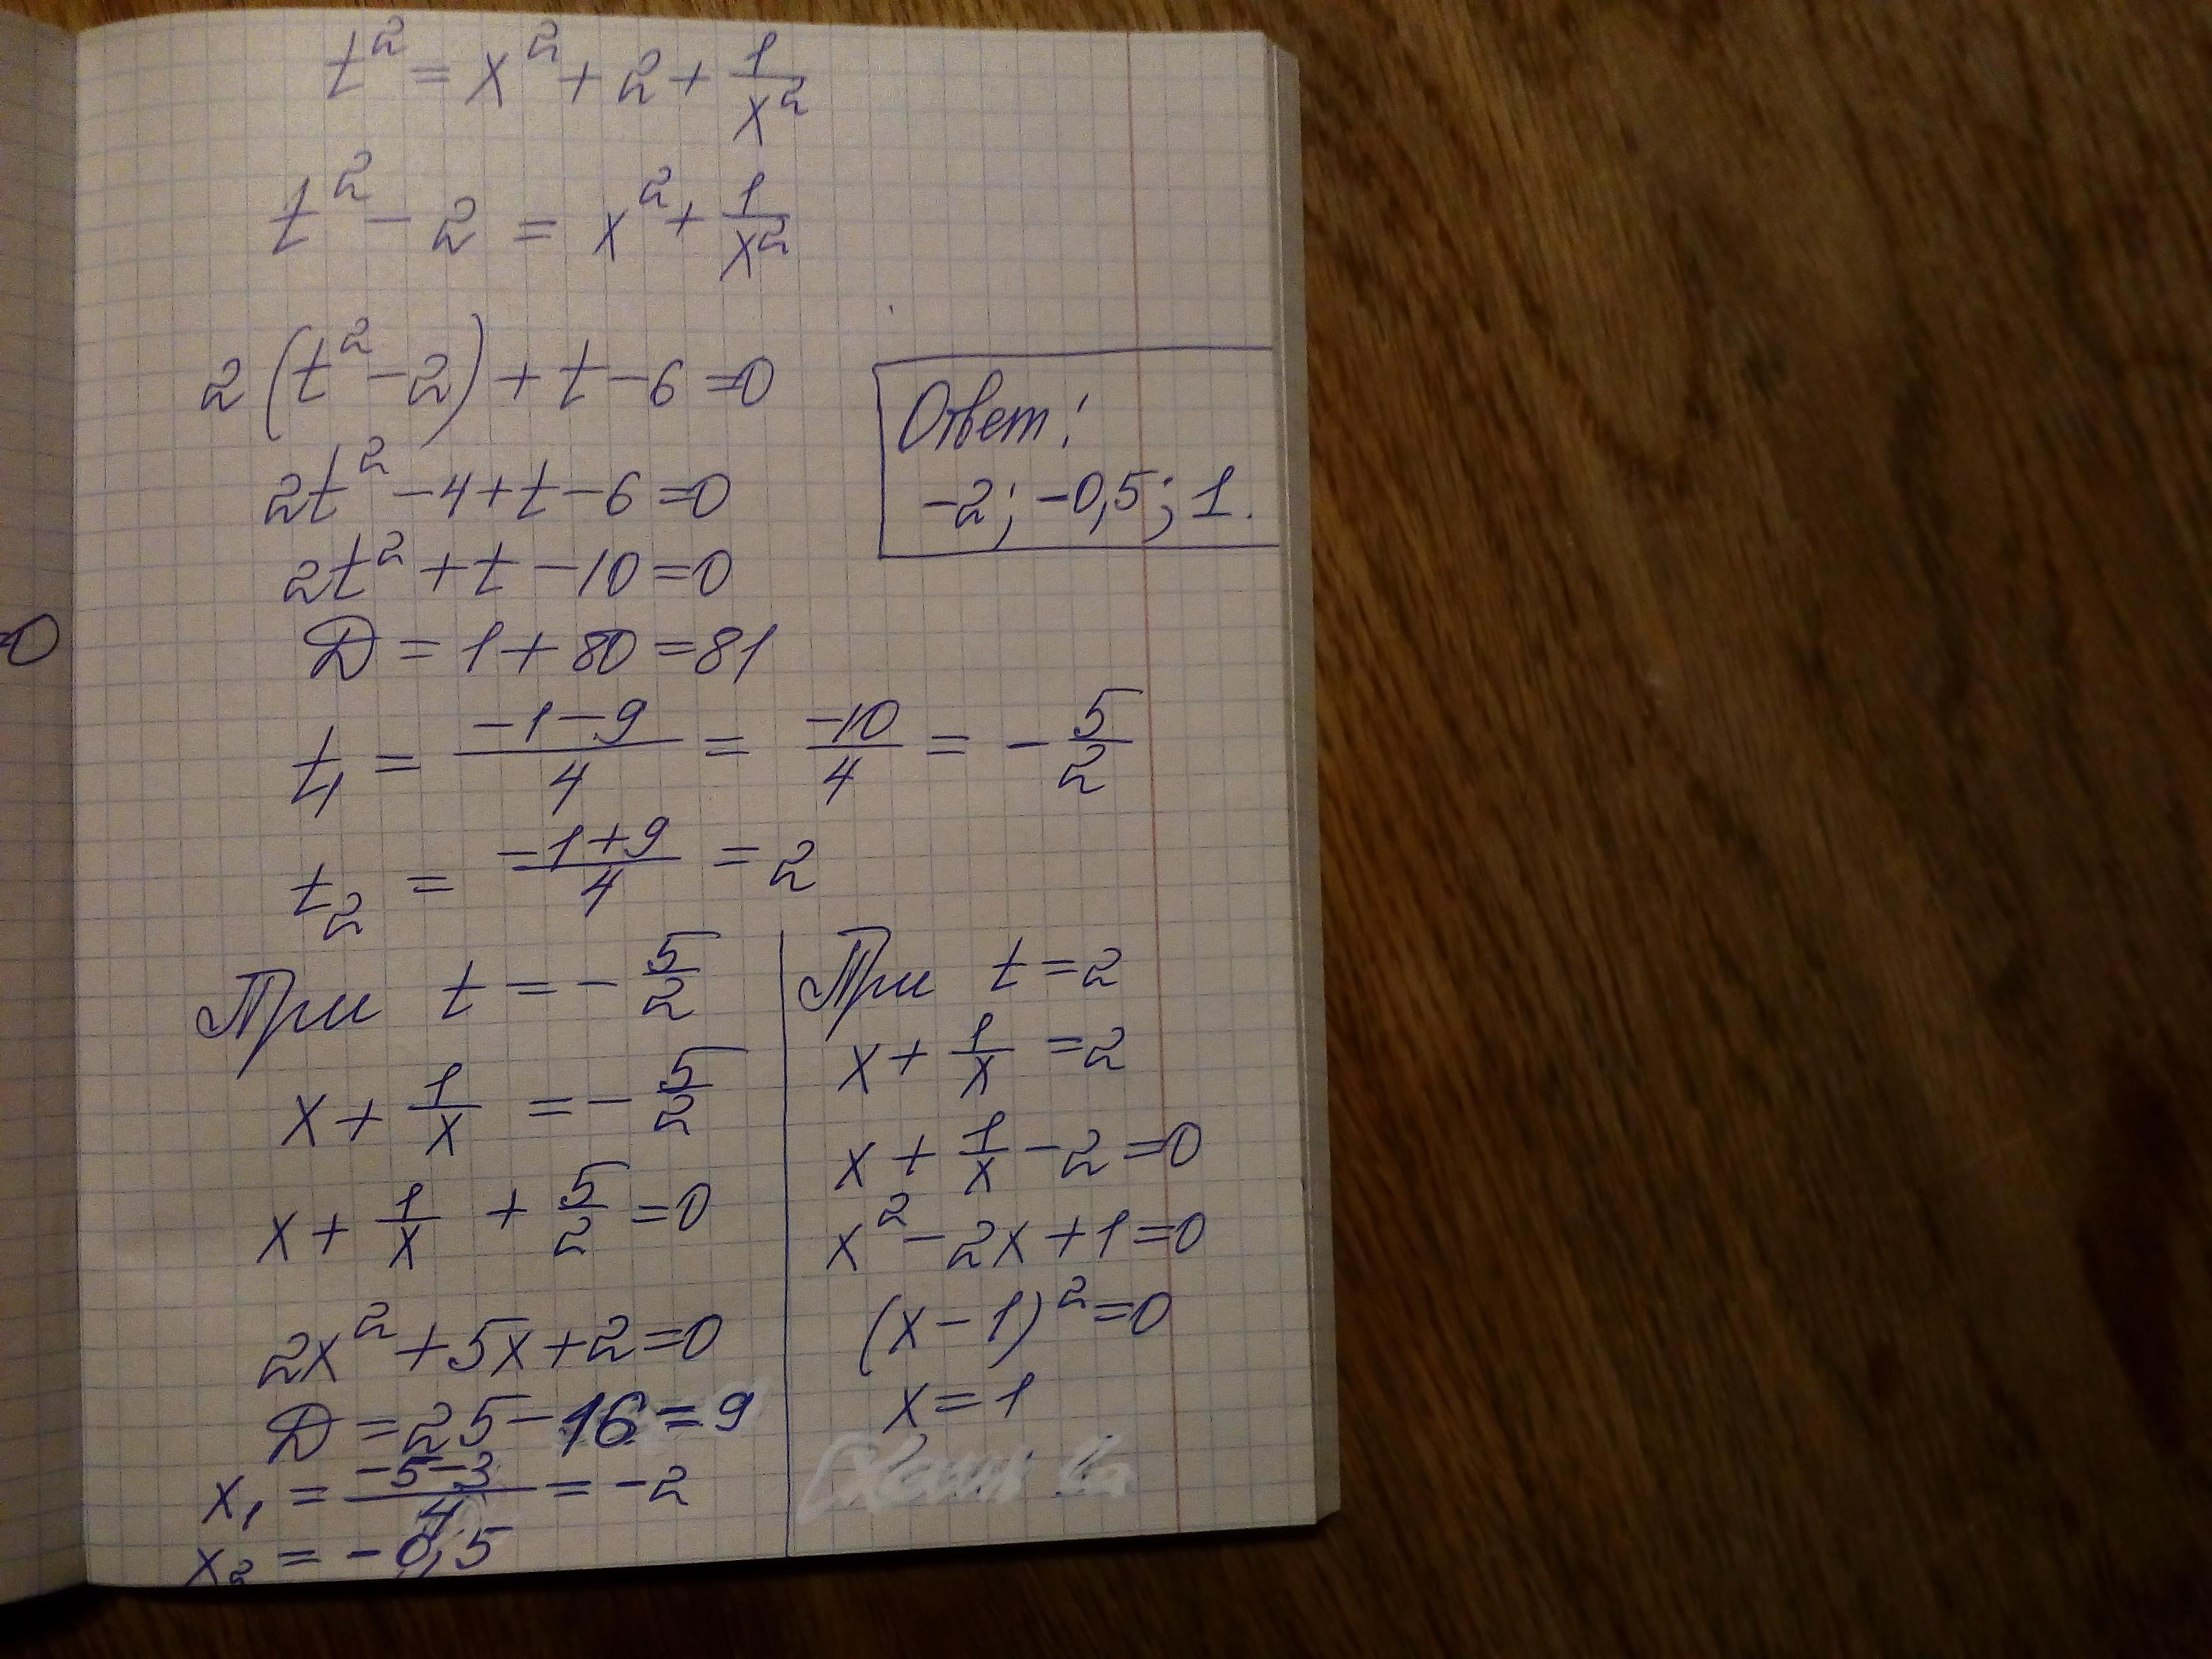 t² = x² + 2 + 1/x²
t² - 2 = x² + 1/x²
2(t² - 2) + t - 6 = 0
2t² - 4 + t - 6 = 0
2t² + t - 10 = 0
Д = 1 + 80 = 81
t₁ = (-1-9)/4 = -10/4 = -5/2
t₂ = (-1+9)/4 = 2
Ответ:
-2; -0,5; 1.
При t = -5/2
x + 1/x = -5/2
x + 1/x + 5/2 = 0
2x² + 5x + 2 = 0
Д = 25 - 16 = 9
x₁ = (-5-3)/4 = -2
x₂ = -0,5
При t = 2
x + 1/x = 2
x + 1/x - 2 = 0
x² - 2x + 1 = 0
(x - 1)² = 0
x = 1
=0